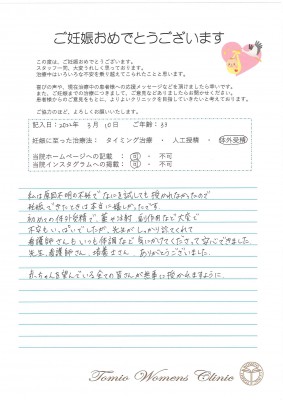 ご妊娠おめでとうございます
この度は、ご妊娠おめでとうございます。
スタッフ一同、大変うれしく思っております。
治療中はいろいろな不安を乗り越えてこられたことと思います。
喜びの声や、現在治療中の患者様への応援メッセージなどを頂けましたら幸いです。
また、妊娠までの治療につきまして、ご意見などありましたらお聞かせください。
患者様からのご意見をもとに、よりよいクリニックを目指していきたいと考えております。
ご協力のほど、よろしくお願いいたします。
記入日:2022年 3月 10日 ご年齢:33
妊娠に至った治療法: タイミング治療 ・ 人工授精 ・ 体外受精
当院ホームページへの記載 : 可 ・ 不可
当院インスタグラムへの掲載 : 可 ・ 不可
私は原因不明の不妊でなにを試しても授かれなかったので
妊娠できたときは本当に嬉しかったです。
初めての体外受精で、薬や注射、副作用などで大変で
不安もいっぱいでしたが、先生がしっかり診てくれて
看護師さんもいつも体調など気にかけてくださって安心できました。
先生、看護師さん、培養士さん、ありがとうございました。
赤ちゃんを望んでいる全ての皆さんが無事に授かれますように。
Tomio Womens Clinic